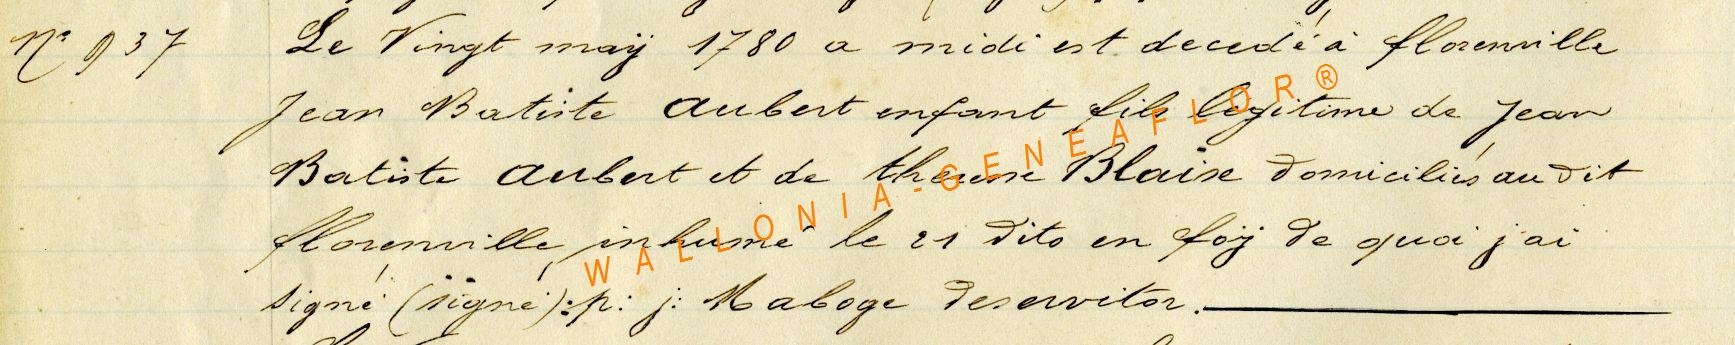 N° 937 Le Vingt maÿ 1780 a midi est decedé à florenville
Jean Batiste Aubert enfant fils légitime de Jean
Batiste Aubert et de therese Blaise domiciliés au dit
florenville, inhumé le 21 dito en foÿ de quoi j'ai
signé (signé): p: j: Maboge deservitor.
WALLONIA-GENEAFLOR®